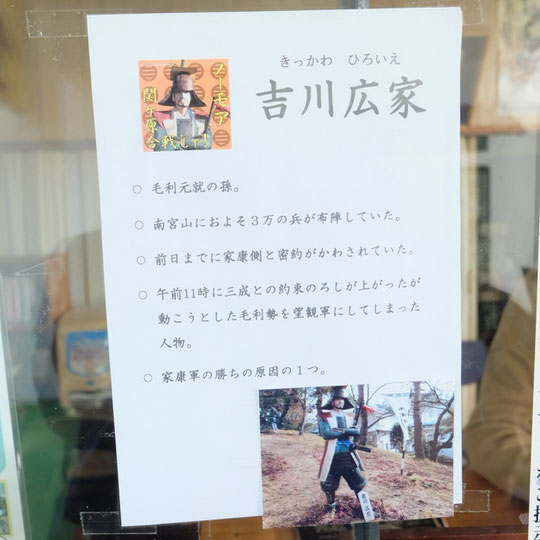 きっかわ　ひろいえ
吉川広家
ノーモア
関ケ原合
戦じゃ！
○ 毛利元就の孫。
○ 南宮山におよそ３万の兵が布陣していた。
○ 前日までに家康側と密約がかわされていた。
○ 午前11時に三成との約束のろしが上がったが
動こうとした毛利勢を望観軍にしてしまった
人物。
○ 家康軍の勝ちの原因の１つ。